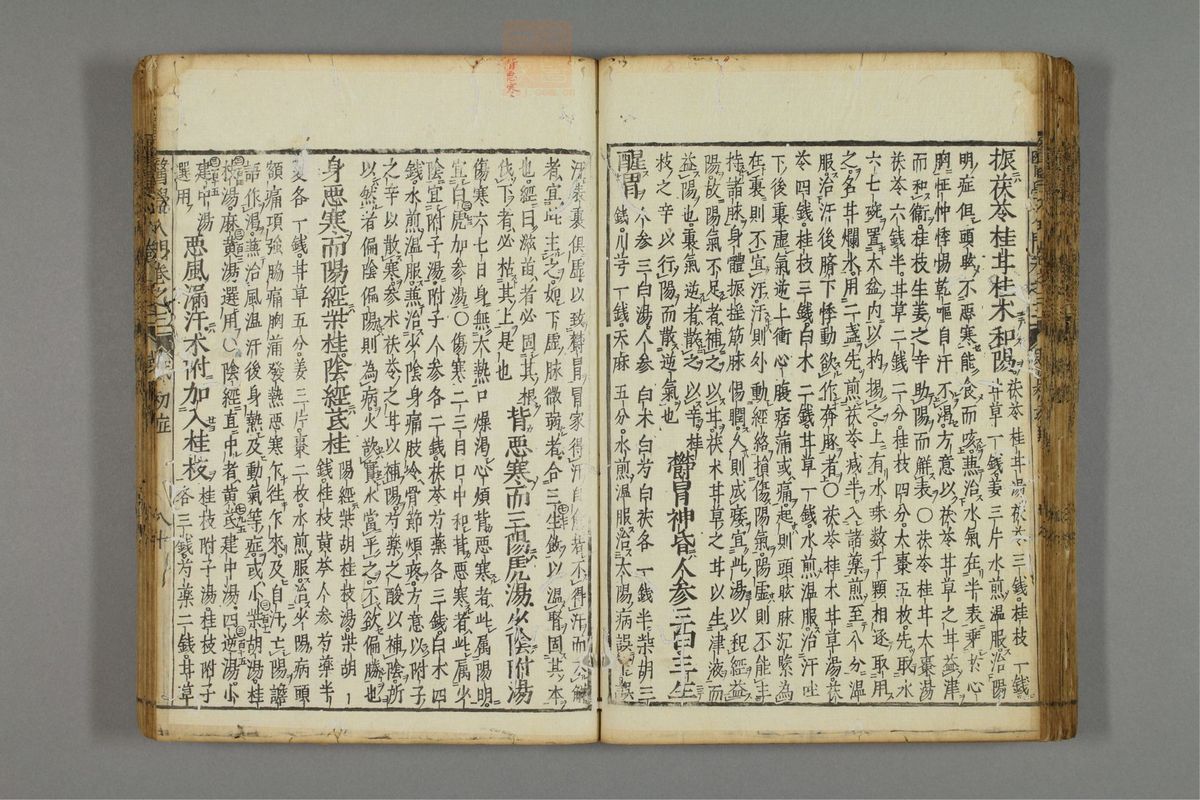 振茯苓桂甘桂术和陽茯苓桂甘湯茯苓三錢桂枝一錢
甘草一錢姜三片水煎温服治陽
明症但頭眩不惡寒能食而咳兼治水氣在半表乗於心
胸怔忡悸惕乾嘔自汗不渴方意以茯苓甘草之甘益津
而和衛桂枝生姜之辛助陽而觧表〇茯苓桂甘大棗湯
茯苓六錢半甘草二錢二分桂枝四分大棗五枚先取水
六七碗置木盆内以杓揚之上有水珠数千顆相逐取用
之名甘爛水用二盞先煎茯苓减半入諸藥煎至八分温
服治汗後臍下悸動欲作奔豚者〇茯苓桂术甘草湯茯
苓四錢桂枝三錢白术二錢甘草一錢水煎温服治汗吐
下後裏虚氣逆上衝心腹痞滿或痛起則頭眩脉沉緊為
在裏則不宜汗汗則外動經絡損傷陽氣陽虚則不能主
持諸脉身體振揺筋脉惕瞤久則成痿宜此湯以和經益
陽故陽氣不足者補之以甘茯术甘草之甘以生津液而
益陽也裏氣逆者散之以辛桂
枝之辛以行陽而散逆氣也
欝冒神昏人参三白三生
醒冒人参三白湯人参白术白芍白茯各一錢半柴胡三
錢川芎一錢天麻五分水煎温服治太陽病誤
汗表裏俱虚以致欝冒冒家得汗自觧若不得汗而不觧
者宜此主之如下虚脉微弱者合三生飲以温腎固其本
也經曰滋苗者必固其根
伐下者必枯其上是也
背惡寒而三陽虎湯少陰附湯
傷寒六七日身無大熱口燥渴心煩背惡寒者此属陽明
宜白虎加参湯〇傷寒二三日口中和背惡寒者此属少
陰宜附子湯附子人参各二錢茯苓芍藥各三錢白术四
錢水煎温服兼治少陰身痛肢冷骨節煩疼方意以附子
之辛以散寒参术茯苓之甘以補陽芍藥之酸以補陰所
以然者偏陰偏陽則為病火欲實水當平之不欲偏勝也
身惡寒而陽經柴桂陰經芪桂陽經柴胡桂枝湯柴胡一
錢桂枝黄芩人参芍藥半
夏各一錢甘草五分姜三片棗二枚水煎服治少陽病頭
額痛項強脇痛胸滿發熱惡寒乍往乍來及自汗亡陽譫
語作渴兼治風温汗後身熱及動氣等症或小柴胡湯桂
枝湯麻黄湯選用〇陰經直中者黄芪建中湯四逆湯小
建中湯
選用
惡風漏汗术附加入桂枝桂枝附子湯桂枝附子
各三錢芍藥二錢甘草
醫學入門卷之三
初症
八十
背惡寒